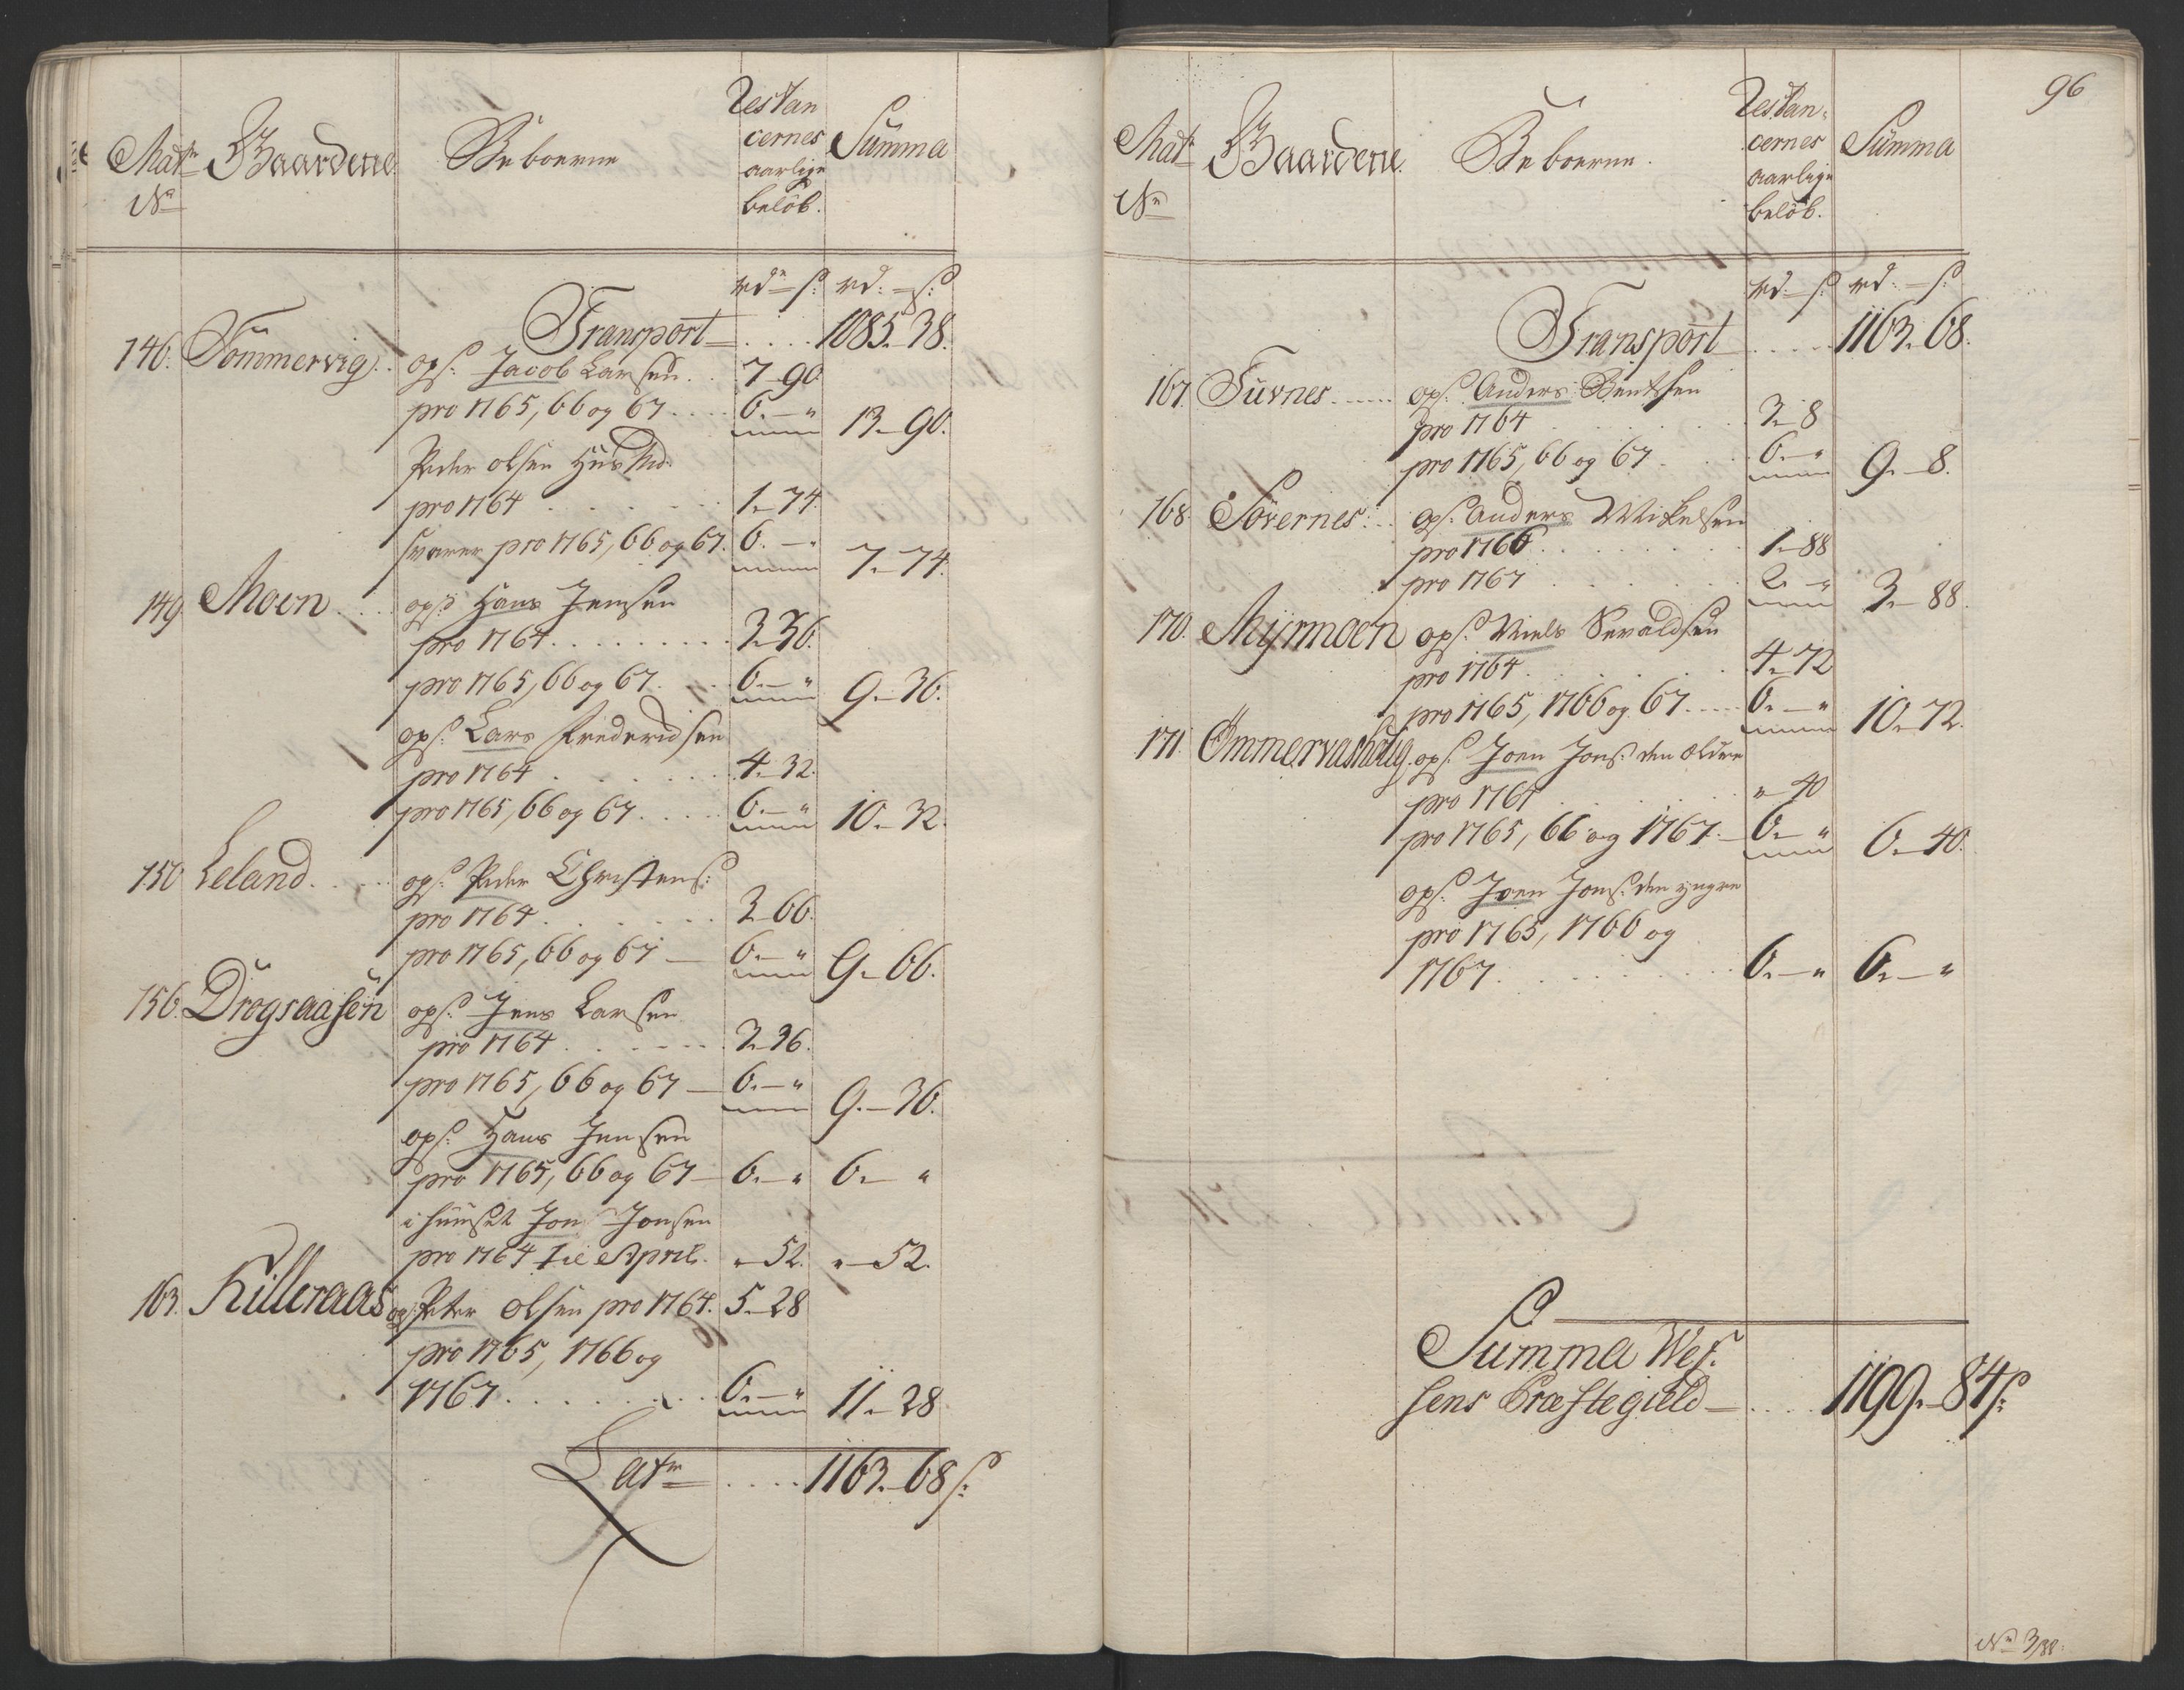 Matr No Gaardene Beboerne Restancernes aarlige beløb. Summa
rdr – s: rd: – s:
Transport . . . . 1085.–38.
146. Sömmervig . . ops: Jacob Larsen . . 7–90
pro 1765, 66 og 67 . . . . 6.–" 13.–90.
Peder Olsen Huusmd:
pro 1764 . . . . . . 1.–74.
svarer pro 1765, 66 og 67. 6.–" 7.–74.
149 Moen . . . ops: Hans Jensen
pro 1764 . . . . . . . . 3–36.
pro 1765, 66 og 67 . . . 6.–" 9.–36.
ops: Lars Frederichsen
pro 1764 . . . . . . . 4.–32.
pro 1765, 66 og 67 . . . . 6.–" 10.–32.
150 Leland . . . . ops: Peder Christens:
pro 1764 . . . . . . . 3–66.
pro 1765, 66 og 67 — 6.–" 9.–66.
156. Drogsaasen ops: Jens Larsen
pro 1764 . . . . . . . 3–36.
pro 1765, 66 og 67 — 6.–" 9.–36.
ops: Hans Jensen
pro 1765, 66 og 67 — 6.–" 6.–"
i huuset Jon Jonsen
pro 1764 til April. "–52. "–52.
163. Killeraas ops: Peter Olsen pro 1764. 5.–28
pro 1765, 1766 og
1767 . . . . . . . . 6.–" 11.–28
Latr . . . . 1163.–68 s:
96
Matr No Gaardene. Beboerne. Restancernes aarlige beløb. Summa
rd: – s: rd: – s:
Transport . . . . 1163.–68.
167. Turnes . . . . . ops: Anders Bentsen
pro 1764 . . . . . . . 3–8
pro 1765, 66 og 67 . . . 6.–" 9.–8.
168. Sövernes . . ops: Anders Mikelsen
pro 1766 . . . . . . . . 1.–88
pro 1767 . . . . . . . 2.–" 3.–88.
170. Myrmoen ops: Niels Sevaldsen
pro 1764 . . . . . . . 4.–72
pro 1765, 1766 og 67 . . . . 6.–" 10.–72.
171. Ömmervashoug. ops: Joen Jons: den Ældre
pro 1764 . . . . . . . "–40
pro 1765, 66 og 1767 — 6.–" 6.–40.
ops: Joen Jons: den yngre
pro 1765, 1766 og
1767 . . . . . . . . 6.–" 6.–"
Summa Wef:
sens Præstegield — . . . . 1199.–84 s:
No 3/38: